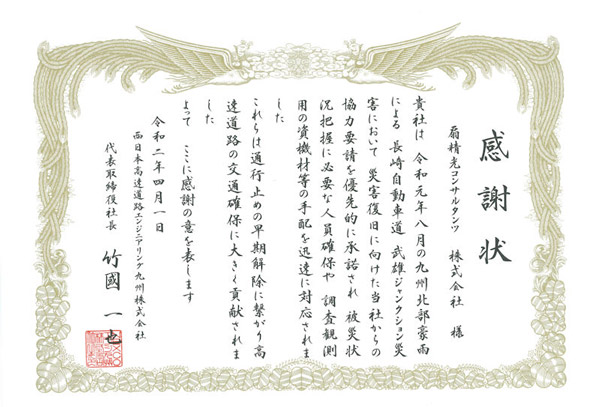 感謝状
扇精光コンサルタンツ　株式会社　様
貴社は　令和元年八月の九州北部豪雨
による　長崎自動車道　武雄ジャンクション災
害において　災害復旧に向けた当社からの
協力要請を優先的に承諾され　被災状
況把握に必要な人員確保や　調査観測
用の資機材等の手配を迅速に対応されま
した
これらは通行止めの早期解除に繋がり高
速道路の交通確保に大きく貢献されま
した
よって　ここに感謝の意を表します
令和二年四月一日
西日本高速道路エンジニアリング九州株式会社
代表取締役社長　竹國一也